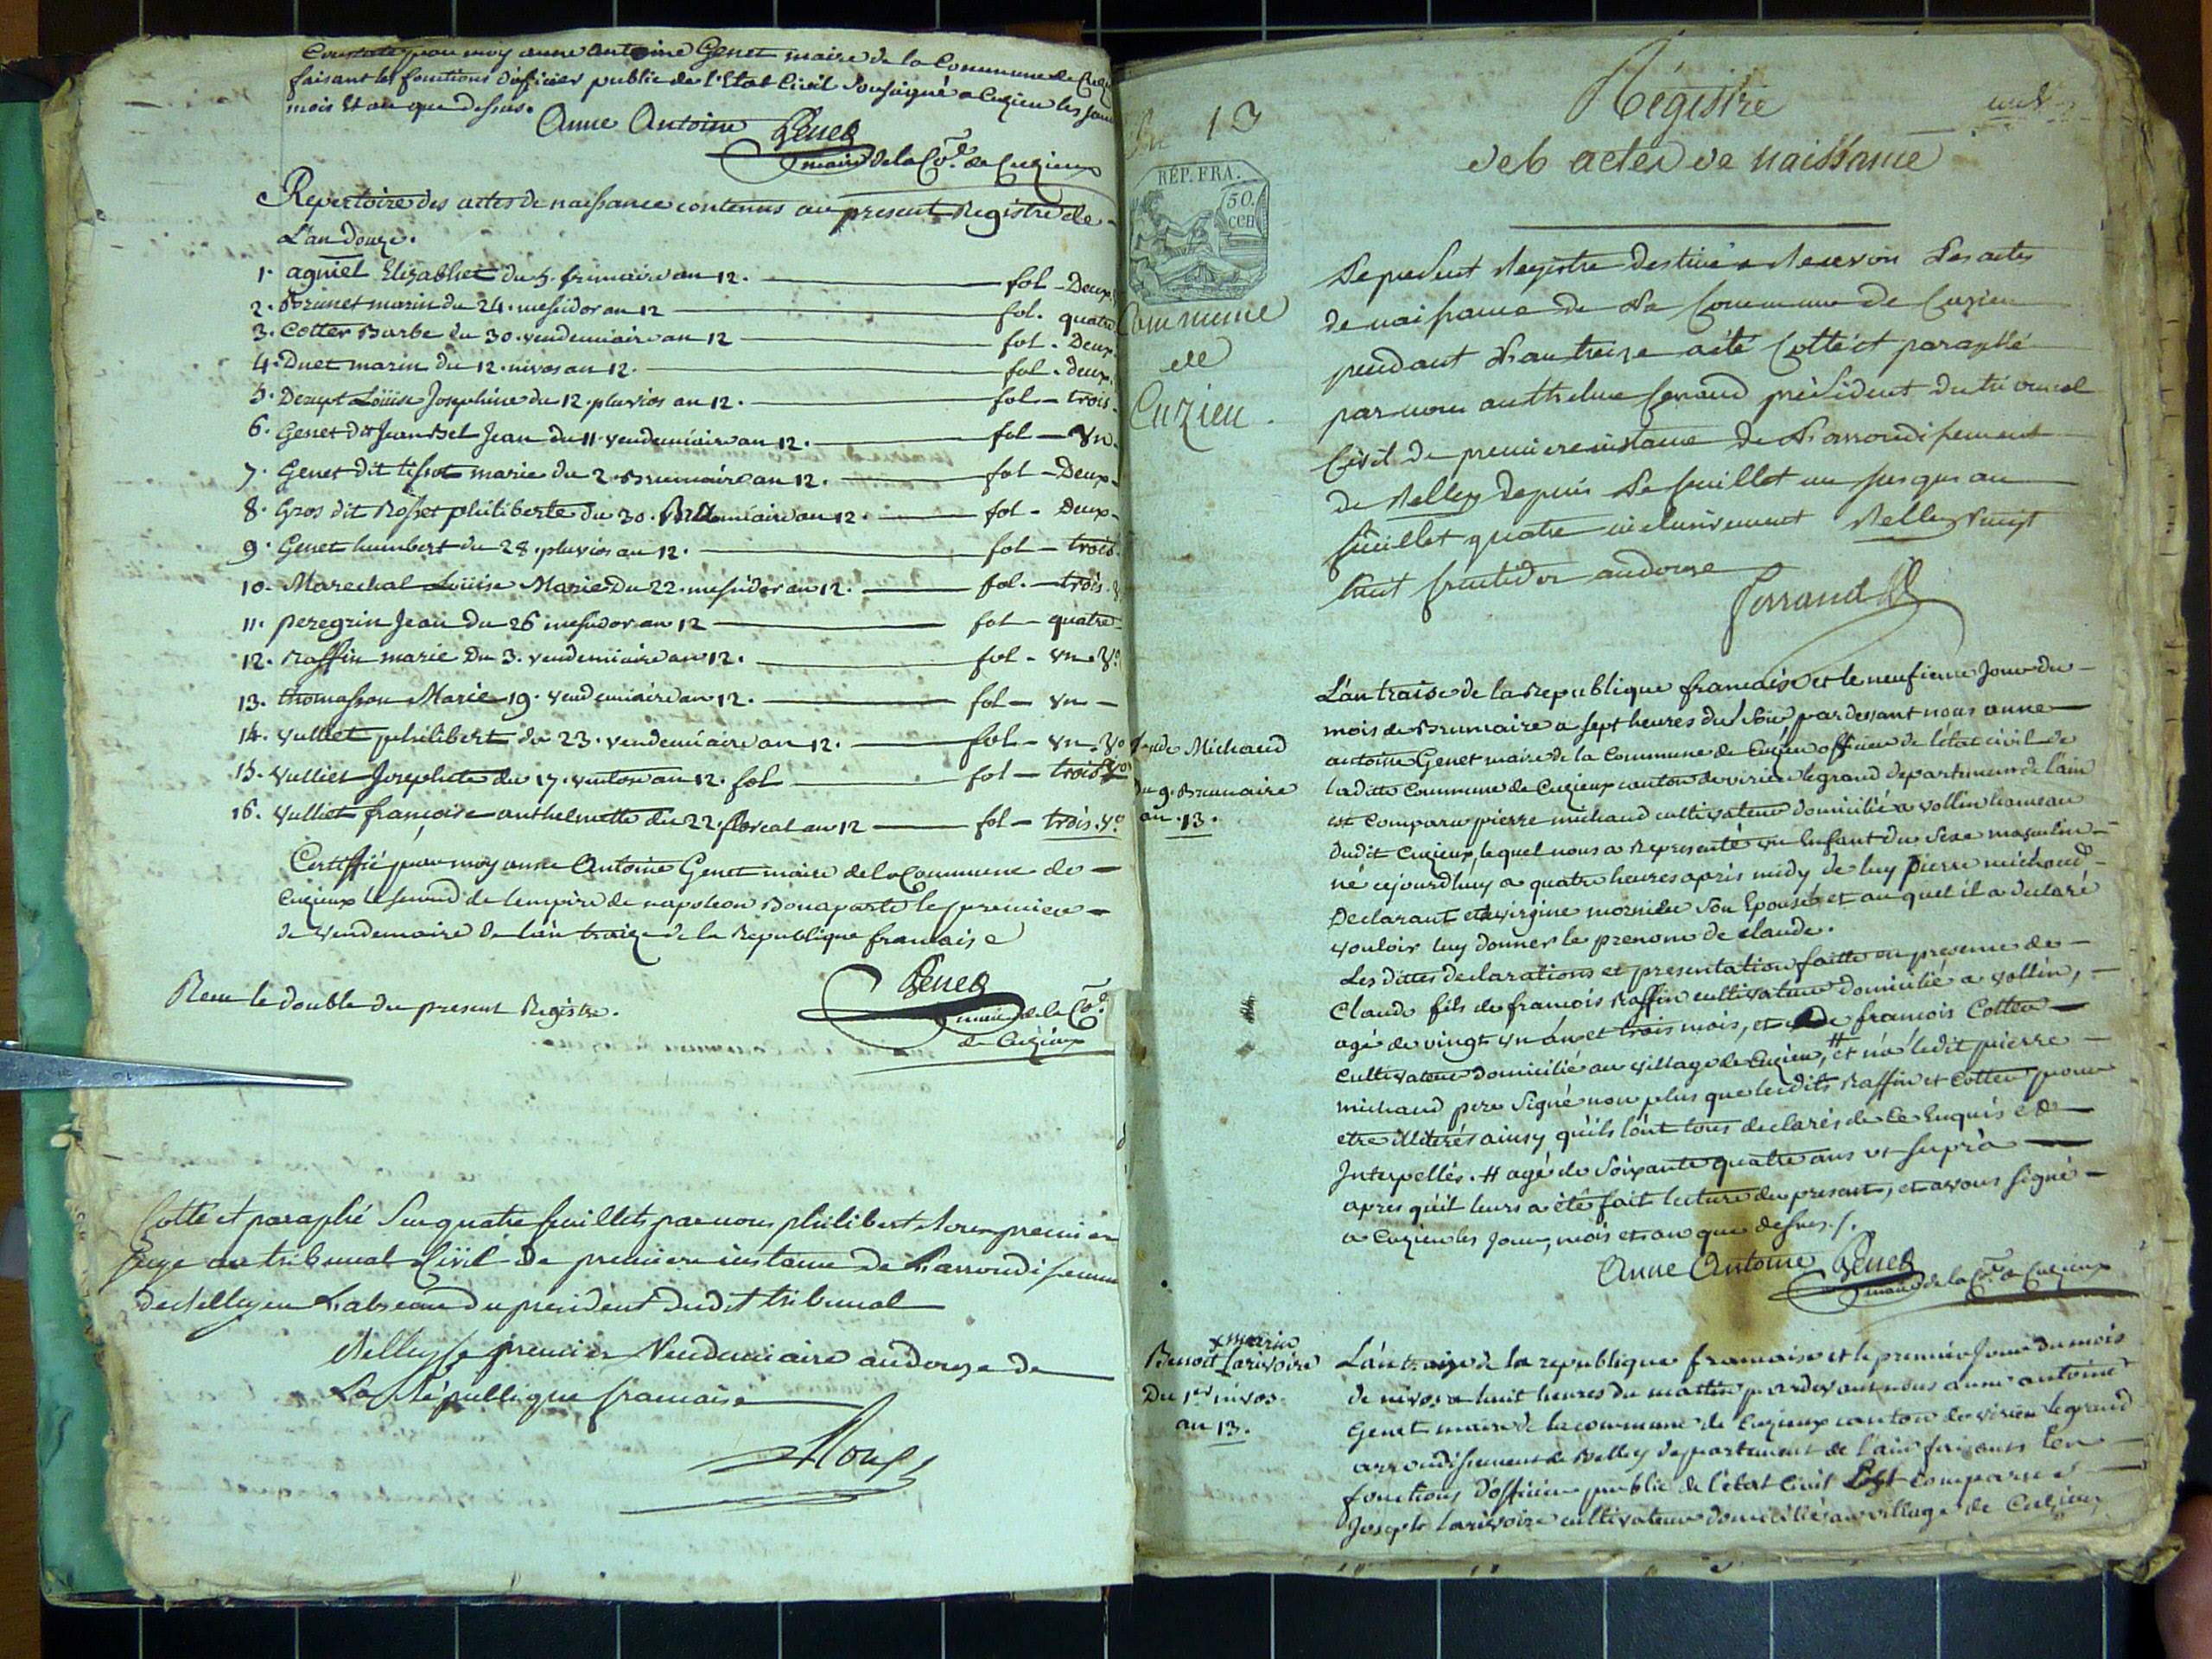 Constaté par moy anne Antoine Genet maire de la Commune de
faisant les fonctions d'officier public de l'Etat Civil Soussigné a Cuzieu les jour
mois et an que dessus.
Anne Antoine Genet
maire de la Co.e de Cuzieux
Repertoire des actes de naissance contenus au present Registre de
L'an douze.
1. agniel Elizabhet du 5. frimaire an 12. fol - Deux
2. Brunet marin du 24. messidor an 12 fol. quatre
3. Cotter Barbe du 30. vendemiaire an 12 fol. Deux
4. Duet marin du 12. nivos an 12. fol. deux
5. Louise Josephine du 12. pluvios an 12. fol - trois
6. Genet dit Jean Jean du 11. vendemiaire an 12. fol - Vn
7. Genet dit tissot marie du 2. Brumaire an 12. fol - Deux
8. Gros dit Rosset philiberte du 30. Brumaire an 12. fol - Deux
9. Genet humbert du 28. pluvios an 12. fol - trois
10. Marechal Loüise Marie Du 22. messidor an 12. fol. - trois
11. peregrin Jean Du 26 messidor an 12 fol - quatre
12. Raffin marie Du 3. vendemiaire an 12. fol - vn. Vo
13. thomasson Marie 19. vendemiaire an 12. fol - vn -
14. Vulliet philibert du 23. vendemiaire an 12. fol - vn. Vo
15. Vulliet Josephete du 17. ventose an 12. fol fol - trois Vo
16. Vulliet françoise anthelmette du 22. floreal an 12 fol - trois. Vo
Certiffié par moy anne Antoine Genet maire de la Commune de
Cuzieux le second de lempire de napoleon Bonaparte le premier
de Vendemaire de lan traize de la Republique francaise
Genet
maire de la Co.e
de Cuzieux
le double du present Registre.
Cotté et paraphé Sur quatre feuillets par nous philibert premier
Juge au tribunal Civil de premiere instance de L'arrondissement
de Belley en L'absence du president dudit tribunal
Belley le premier Vendemiaire an douze de
La République francaise
13
Régistre
des actes de naissance
RÉP. FRA.
50.
CEN
Commune
de
Cuzieu.
Le present Registre destiné a Recevoir Les actes
de naissance de La Commune de Cuzieu
pendant L'an treize a été Cotté et paraphé
par nous anthelme ferrand président du tribunal
Civil de premiere instance de L'arrondissement
de Belley depuis Le feuillet un jusques au
feuillet quatre inclusivement Belley vingt
huit fructidor an douze
ferrand
Claude Michaud
du 9. Brumaire
an .13.
L'an traise de la Republique francaise et le neufieme Jour du
mois de Brumaire a sept heures du Soir pardevant nous anne
antoine Genet maire de la Commune de Cuzieu officier de l'etat civil de
ladite Commune de Cuzieux canton de virieu legrand departement de lain
est Comparu pierre michaud cultivateur domicilié a vollin hameau
dudit Cuzieux, lequel nous a Representé un Enfant du Sexe masculin
né cejourdhuy a quatre heures apris midy de luy pierre michaud
Declarant et virgine Son Epouse et auquel il a declaré
vouloir luy donner le prenom de claude.
Les dittes declarations et presentation faitte en presence de
Claude fils de francois Raffin cultivateur domicilié a vollin,
agé de vingt vn an et trois mois, et de francois Cotter
Cultivateur domicilié au village de Cuzieu, # et n'a ledit pierre
michaud pere Signé non plus que lesdits Raffin et Cotter pour
etre illiterés ainsy qu'ils l'ont tous declarés de ce Enquis et
Interpellés. # agé de Soixante quatre ans vt supra
apres qu'il leurs a été fait lecture du present, et avons signé
a Cuzieu les Jour, mois et an que dessus./.
Anne Antoine Genet
maire de la Co.e de Cuzieux
x marin
Benoit Larivoire
Du 1er nivos.
an 13.
L'an traize de la republique francaise et le premier Jour du mois
de nivos a huit heures du mattin pardevant nous anne antoine
Genet maire de la commune de Cuzieux canton de virieu legrand
arrondissement de Belley departement de l'ain faisant les
fonctions d'officier public de l'état Civil Est comparu
Joseph Larivoire cultivateur domicillié au village de Cuzieux